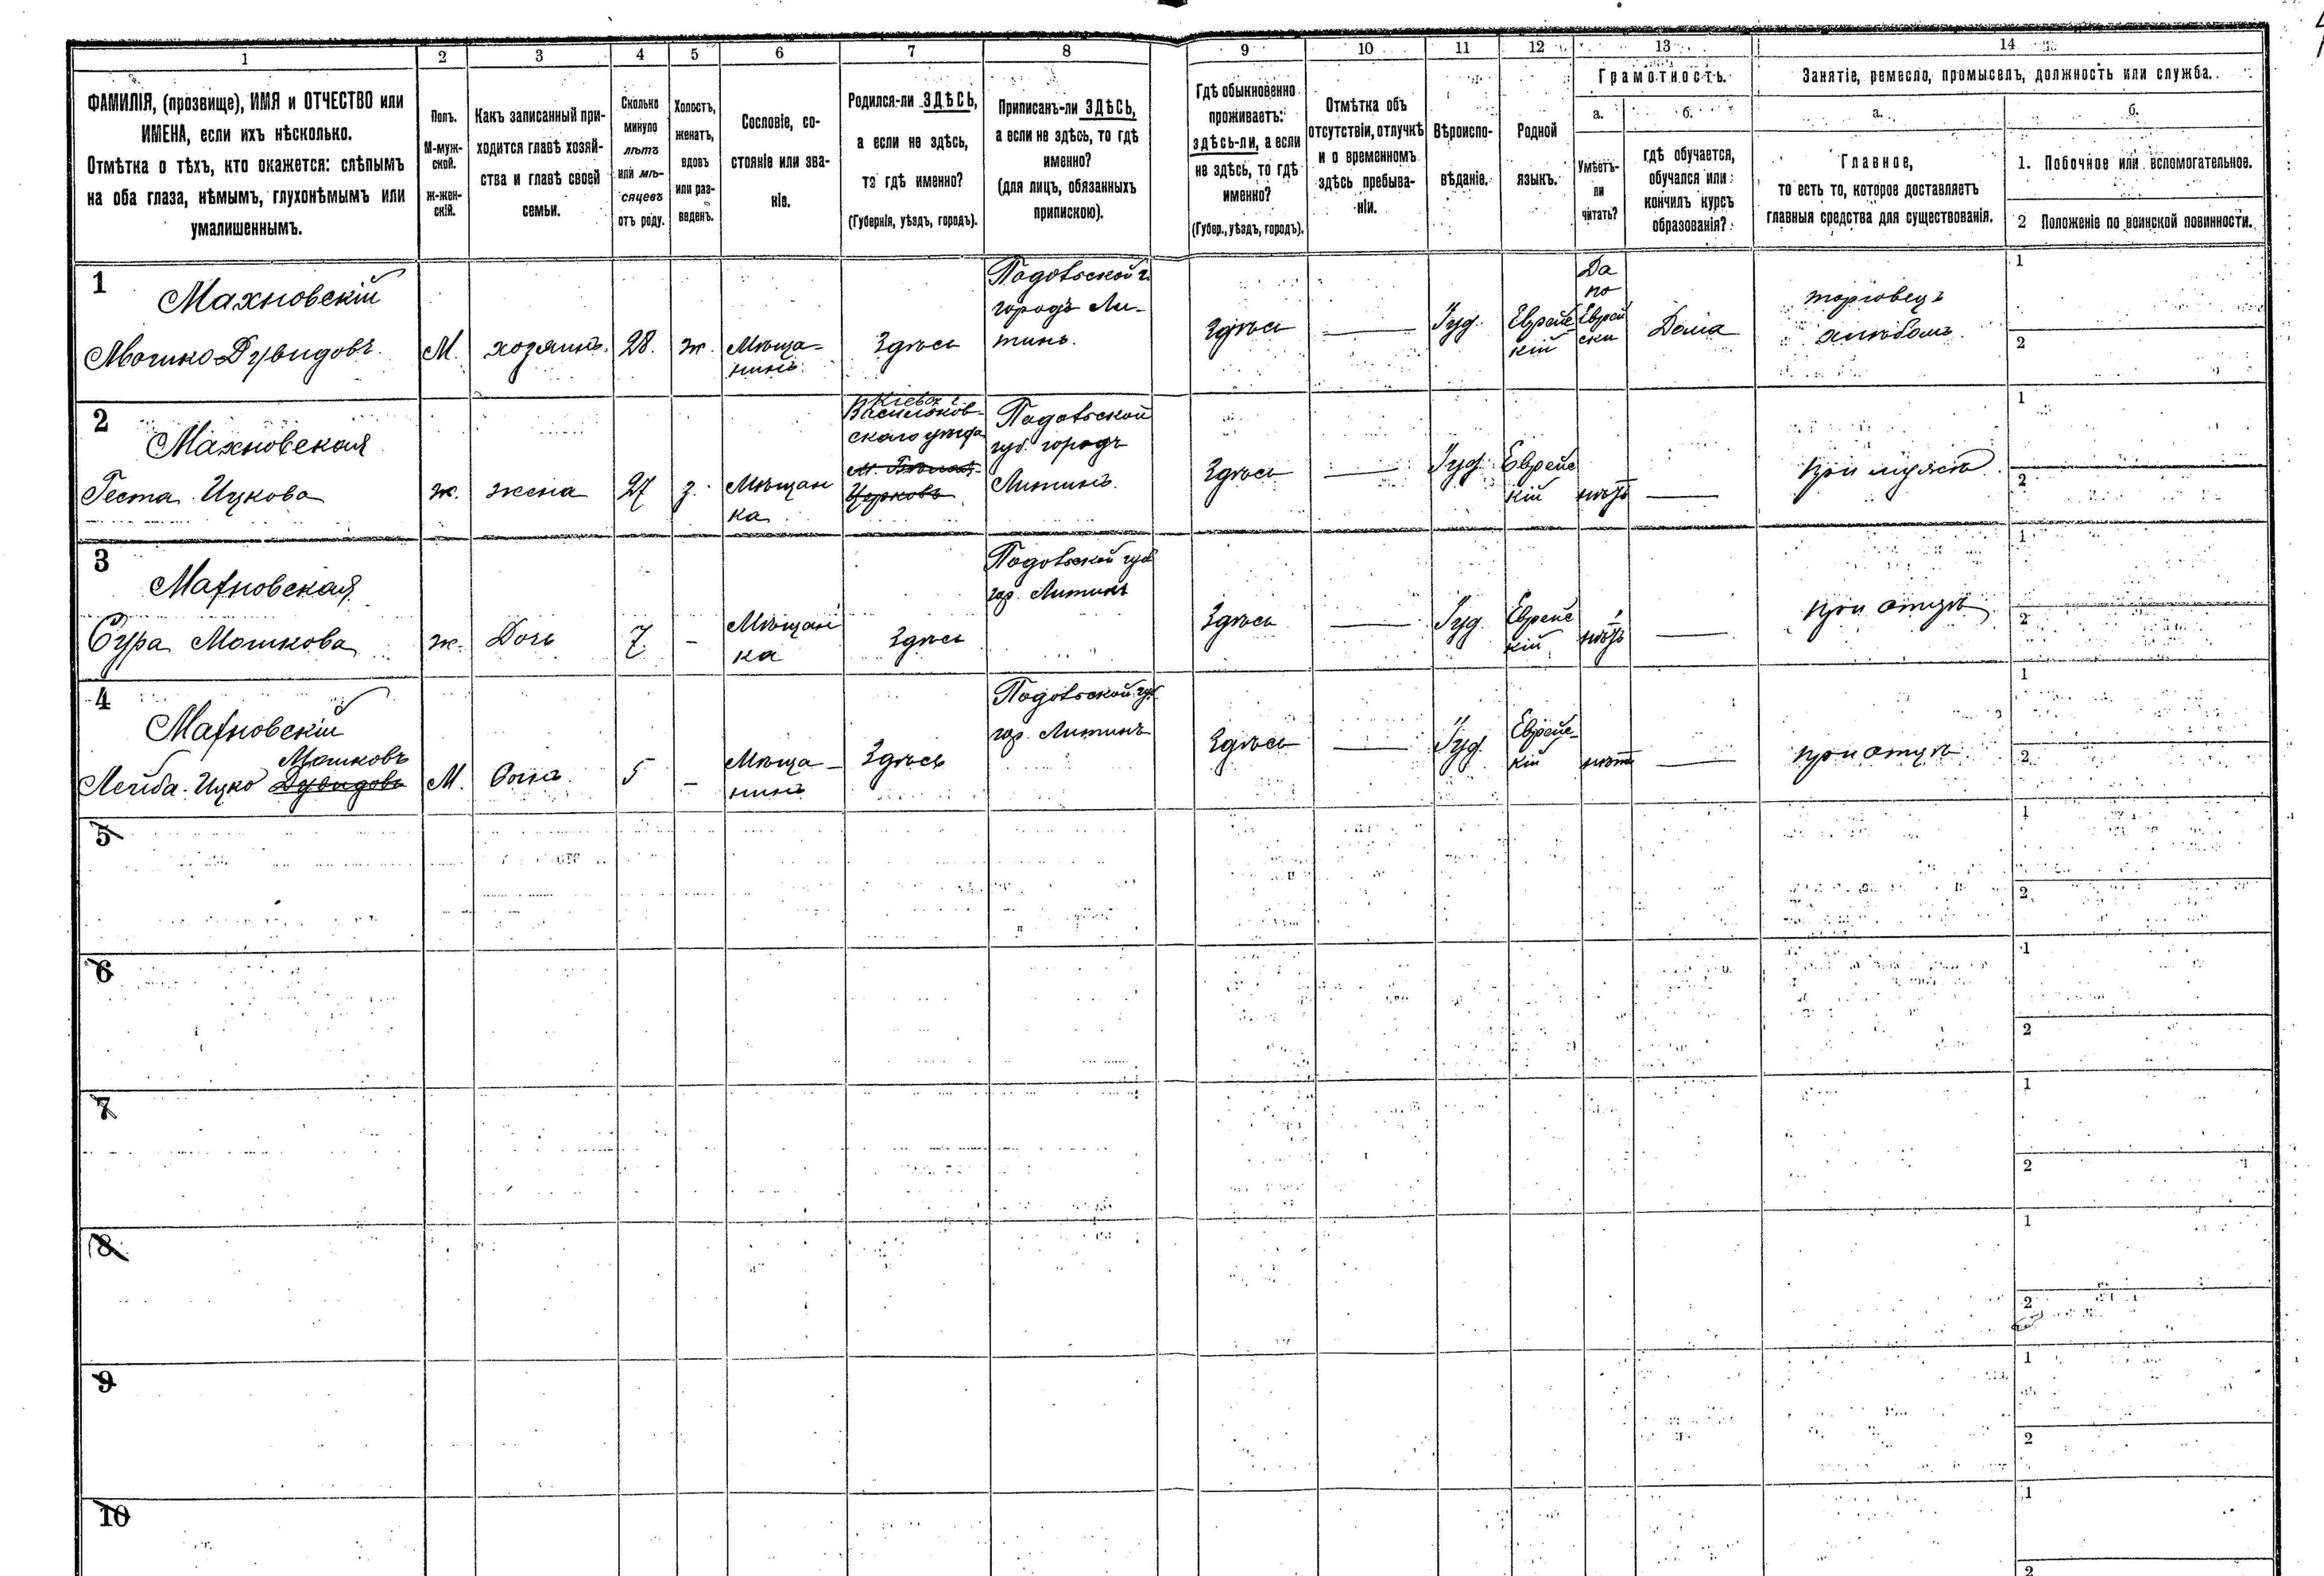 1
2
3
4
5
6
7
8
9
10
11
12
13
14
ФАМИЛІЯ, (прозвище), ИМЯ и ОТЧЕСТВО или
ИМЕНА, если ихъ нѣсколько.
Отмѣтка о тѣхъ, кто окажется: слѣпымъ
на оба глаза, нѣмымъ, глухонѣмымъ или
умалишеннымъ.
Полъ.
М-муж-
ской.
ж-жен-
скій.
Какъ записанный при-
ходится главѣ хозяй-
ства и главѣ своей
семьи.
Сколько
минуло
лѣтъ
или мѣ-
сяцевъ
отъ роду.
Холостъ,
женатъ,
вдовъ
или раз-
веденъ.
Сословіе, со-
стояніе или зва-
ніе.
Родился-ли ЗДѢСЬ,
а если не здѣсь,
то гдѣ именно?
(Губернія, уѣздъ, городъ).
Приписанъ-ли ЗДѢСЬ,
а если не здѣсь, то гдѣ
именно?
(для лицъ, обязанныхъ
припискою).
Гдѣ обыкновенно
проживаетъ:
здѣсь-ли, а если
не здѣсь, то гдѣ
именно?
(Губер., уѣздъ, городъ).
Отмѣтка объ
отсутствіи, отлучкѣ
и о временномъ
здѣсь пребыва-
ніи.
Вѣроиспо-
вѣданіе.
Родной
языкъ.
Грамотность.
а.
Умѣетъ-
ли
читать?
б.
гдѣ обучается,
обучался или
кончилъ курсъ
образованія?
Занятіе, ремесло, промыселъ, должность или служба.
а.
Главное,
то есть то, которое доставляетъ
главныя средства для существованія.
б.
1. Побочное или вспомогательное.
2 Положеніе по воинской повинности.
1
Махновскій
Мошко Дувидовъ.
М.
хозяинъ.
28.
ж.
Мѣща-
нинъ.
Здѣсь
Подольской г.
городъ Ли-
тинъ.
Здѣсь
Іуд.
Еврейс-
кій
Да
по
Еврей
ски
Дома
торговецъ
хлѣбомъ.
1
2
2
Махновская
Геста Ицкова
ж.
жена
27
з.
Мѣщан
ка
Кіевск г
Васильков-
скаго уѣзда
м. Бѣлая-
Церковь
Подольской
губ. городъ
Литинъ.
Здѣсь
Іуд.
Еврейс
кій
нѣтъ
при мужѣ
1
2
3
Махновская
Сура Мошкова
ж.
Дочь
7
-
Мѣщан
ка
Здѣсь
Подольской губ
гор. Литинъ
Здѣсь
Іуд.
Еврейс
кій
нѣтъ
при отцѣ
1
2
4
Махновскій
Мошковъ
Лейба-Ицко Дувидовъ
М.
Сынъ
5
-
Мѣща-
нинъ
Здѣсь
Подольской губ
гор. Литинъ
Здѣсь
Іуд.
Еврейс-
кій
нѣтъ
при отцѣ
1
2
5
1
2
6
1
2
7
1
2
8
1
2
9
1
2
10
1
2